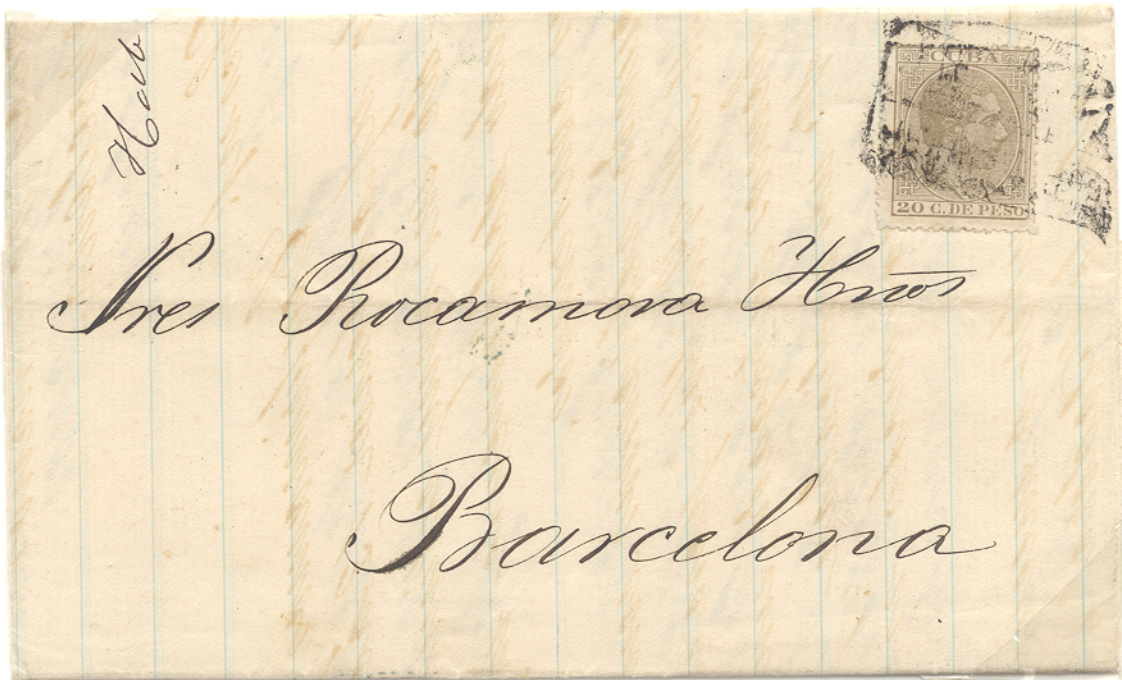 Hab
CUBA
20 C. DE PESO
Sres Rocamora Hnos
Barcelona